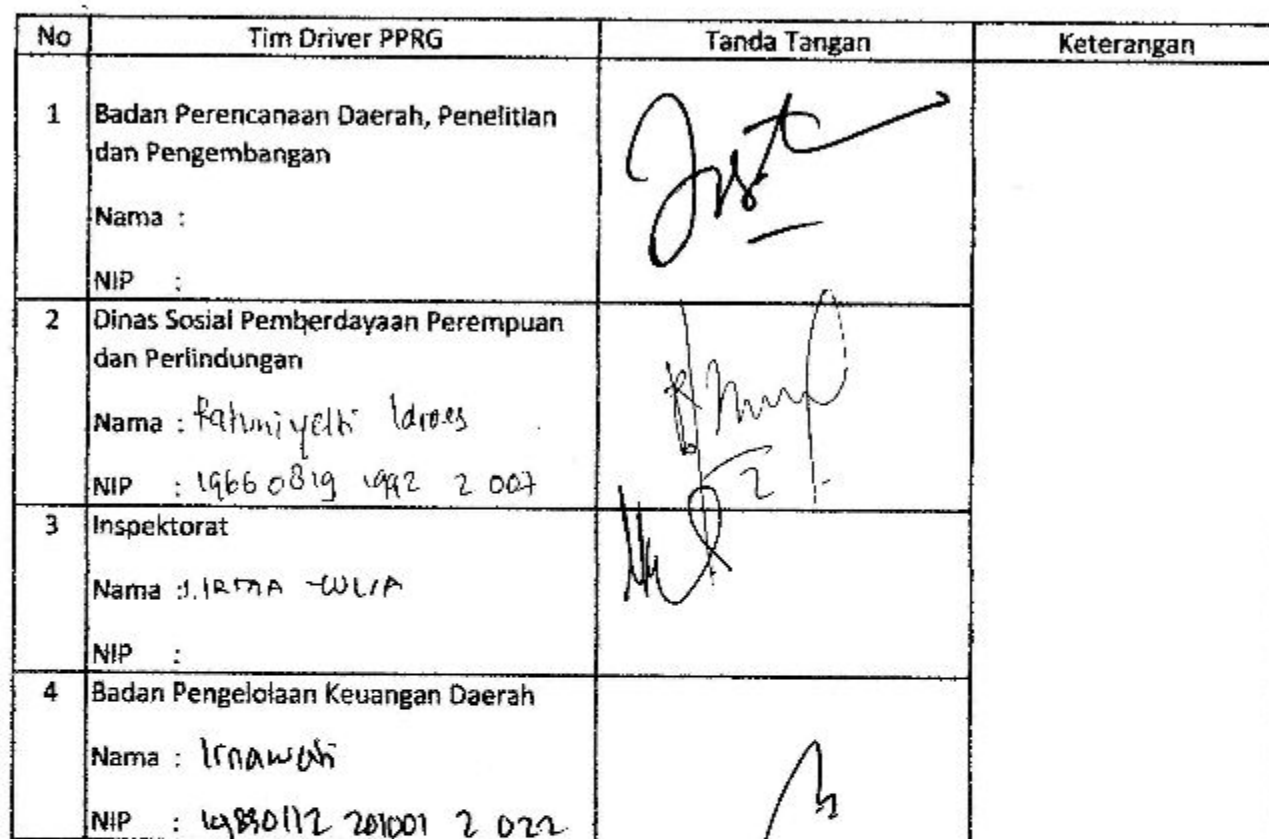 No Tim Driver PPRG Tanda Tangan Keterangan
1 Badan Perencanaan Daerah, Penelitian
dan Pengembangan
Nama :
NIP :
2 Dinas Sosial Pemberdayaan Perempuan
dan Perlindungan
Nama : Idroes
NIP : 19660819 1992 2 007
3 Inspektorat
Nama : IRMA
NIP :
4 Badan Pengelolaan Keuangan Daerah
Nama : Irnawati
NIP : 19830112 201001 2 022